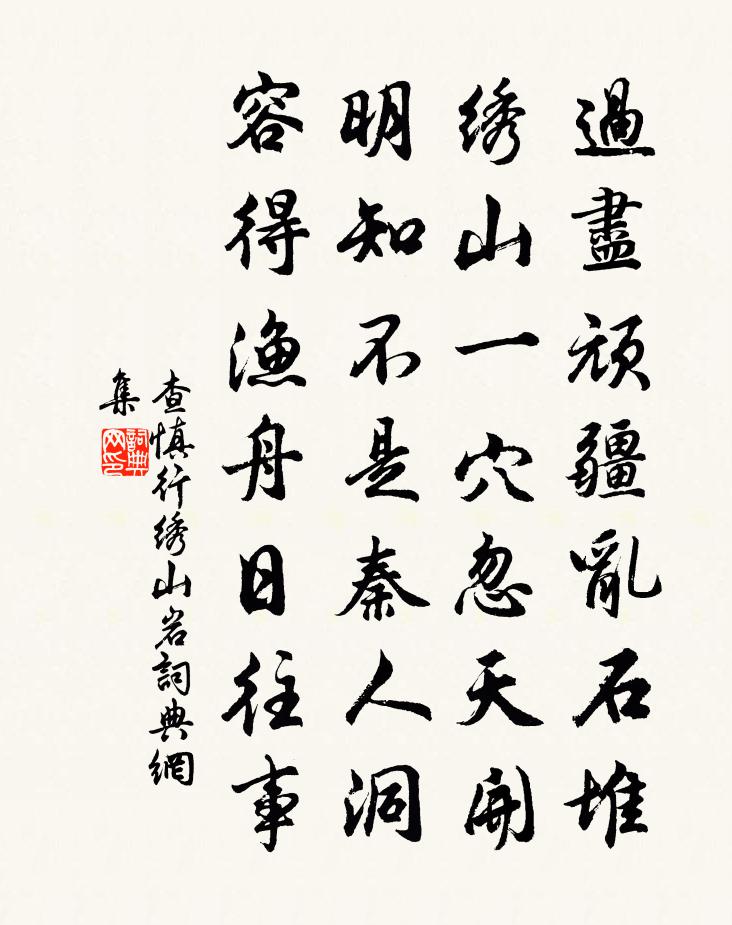 過盡頑疆亂石堆
綉山一穴忽天開
明知不是秦人洞
容得漁舟日往事
查慎行綉山岩詞典網
集
詞典
网印